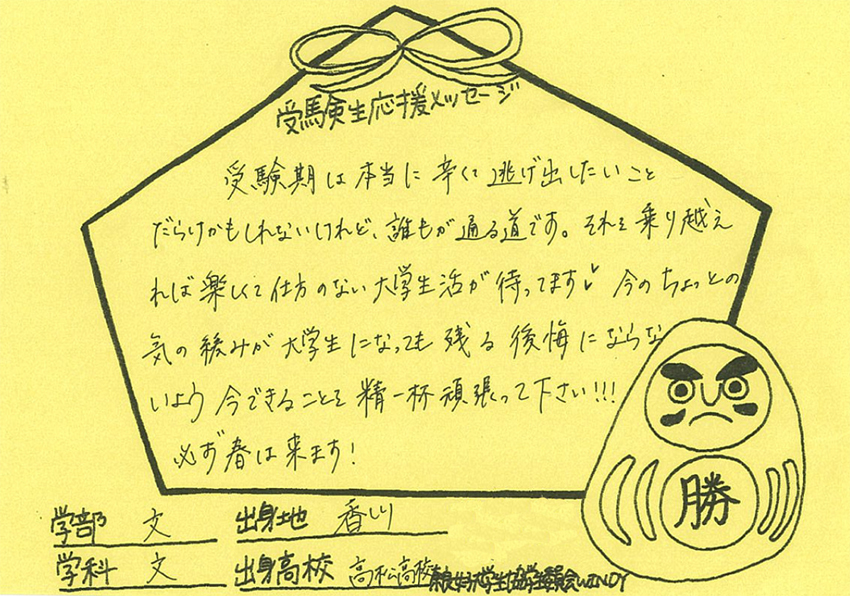 受験生応援メッセージ
受験期は本当に辛くて逃げ出したいこと
だらけかもしれないけれど、誰もが通る道です。それを乗り越え
れば楽しくて仕方のない大学生活が待ってます♥ 今のちょっとの
気の緩みが大学生になっても残る後悔にならな
いよう今できることを精一杯頑張って下さい!!!
必ず春は来ます!
勝
学部 文 出身地 香川
学科 文 出身高校 高松高校
奈良女子大学生協学生委員会WINDY